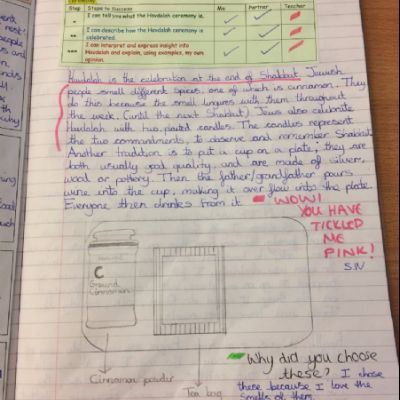 Ceremony
Step Steps to Success Me Partner Teacher
* I can tell you what the Havdalah ceremony is.
** I can describe how the Havdalah ceremony is
celebrated.
*** I can interpret and express insight into
Havdalah and explain, using examples, my own
opinion.
Havdalah is the celebration at the end of Shabbat. Jewish
people smell different spices, one of which is cinnamon. They
do this because the smell lingures with them throughout
the week. (until the next Shabbat) Jews also celebrate
Havdalah with two plaited candles. The candles represent
the two commandments, to observe and remember Shabat.
Another tradition is to put a cup on a plate; they are
both usually good quality, and are made of silver,
wood or pottery. Then the father/grandfather pours
wine into the cup, making it over flow into the plate.
Everyone then drinks from it.
WOW!
YOU HAVE
TICKLED
ME
PINK!
S.N
C
Ground
Cinnamon
Cinnamon powder
Tea bag
Why did you choose
these? I chose
these because I love the
smells of them.